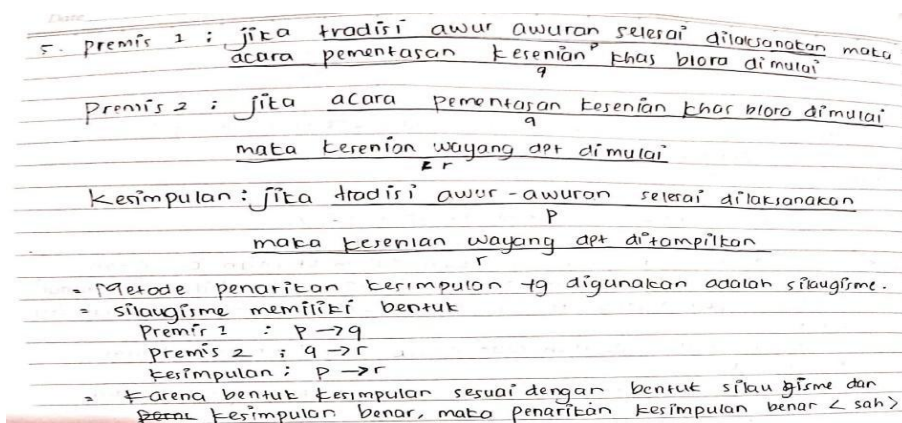 Date
5. premis 1 : jika tradisi awur awuran selesai dilaksanakan maka
p
acara pementasan kesenian khas blora dimulai
q
Premis 2 : jika acara pementasan kesenian khas blora dimulai
q
maka kesenian wayang dpt dimulai
r
Kesimpulan : jika tradisi awur-awuran selesai dilaksanakan
p
maka kesenian wayang dpt ditampilkan
r
- Metode penarikan kesimpulan yg digunakan adalah silaugisme.
- silaugisme memiliki bentuk
Premis 1 : P → q
Premis 2 : q → r
kesimpulan : P → r
- Karena bentuk kesimpulan sesuai dengan bentuk silaugisme dan
kesimpulan benar, maka penarikan kesimpulan benar < sah >